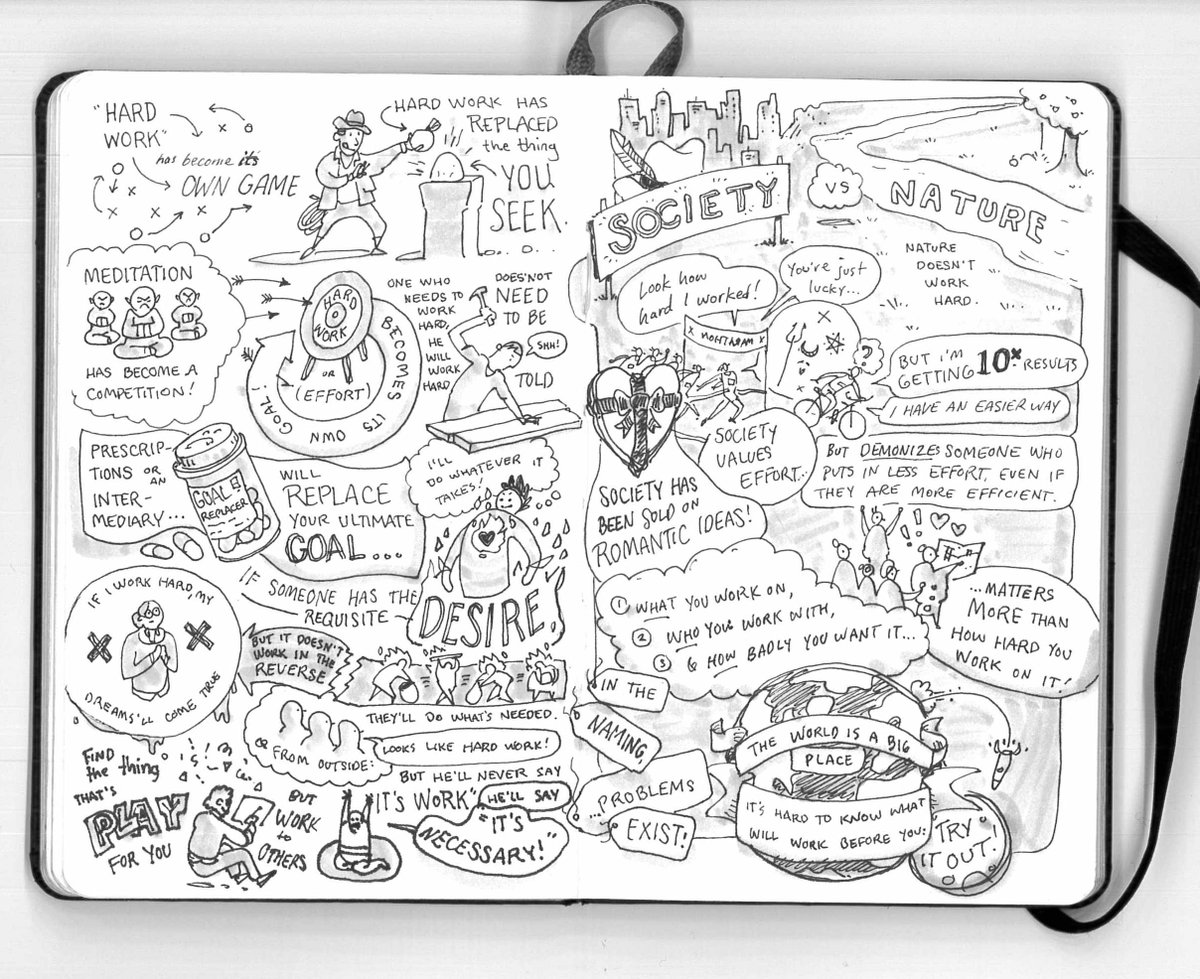 "HARD
WORK"
has become its
OWN GAME
HARD WORK HAS
REPLACED
the thing
YOU
SEEK.
MEDITATION
HAS BECOME A
COMPETITION!
HARD
WORK
OR
(EFFORT)
BECOMES ITS
OWN
GOAL!
ONE WHO
NEEDS TO
WORK
HARD,
HE
WILL
WORK
HARD.
DOES'NOT
NEED
TO BE
TOLD
SHH!
PRESCRIP-
TIONS OR AN
INTER-
MEDIARY...
GOAL
REPLACER
WILL
REPLACE
YOUR ULTIMATE
GOAL...
I'LL
DO WHATEVER IT
TAKES!
IF SOMEONE HAS THE
REQUISITE
DESIRE,
IF I WORK HARD, MY
DREAMS'LL COME TRUE
BUT IT DOESN'T
WORK IN THE
REVERSE
THEY'LL DO WHAT'S NEEDED.
FROM OUTSIDE:
LOOKS LIKE HARD WORK!
BUT HE'LL NEVER SAY
"IT'S WORK"
HE'LL SAY
"IT'S
NECESSARY!"
FIND
the thing
THAT'S
PLAY
FOR YOU
BUT
WORK
to
OTHERS
SOCIETY
VS
NATURE
NATURE
DOESN'T
WORK
HARD.
Look how
hard I worked!
You're just
lucky...
X MOHTARAM X
?
BUT I'M
GETTING 10x RESULTS
I HAVE AN EASIER WAY
SOCIETY
VALUES
EFFORT...
BUT DEMONIZES SOMEONE WHO
PUTS IN LESS EFFORT, EVEN IF
THEY ARE MORE EFFICIENT.
SOCIETY HAS
BEEN SOLD ON
ROMANTIC IDEAS!
① WHAT YOU WORK ON,
② WHO YOU WORK WITH,
③ & HOW BADLY YOU WANT IT...
...MATTERS
MORE THAN
HOW HARD YOU
WORK ON IT!
IN THE
NAMING,
...PROBLEMS
EXIST!
THE WORLD IS A BIG
PLACE
IT'S HARD TO KNOW WHAT
WILL WORK BEFORE YOU:
TRY
IT OUT!